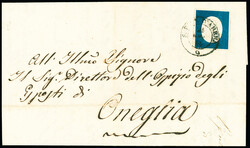 All' Illmo Signore
Il Sigr. Direttore dell'Ospizio degli
Esposti di
Oneglia